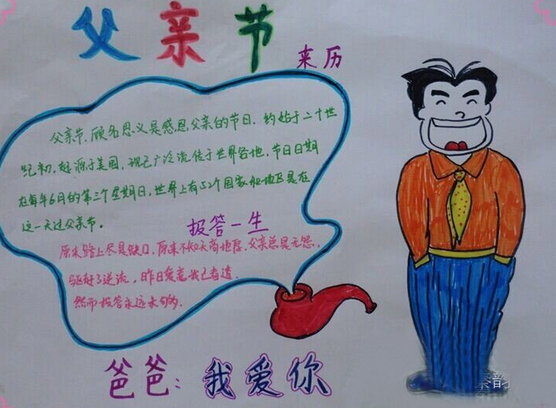 父亲节
来历
父亲节,顾名思义是感恩父亲的节日。约始于二十世
纪初,起源于美国,现已广泛流传于世界各地,节日日期
在每年6月的第三个星期日,世界上有52个国家和地区是在
这一天过父亲节。
报答一生
原来路上尽是缺口,原来不知天高地厚,父亲总是无怨,
昨日
然而报答永远未够。
爸爸:我爱你